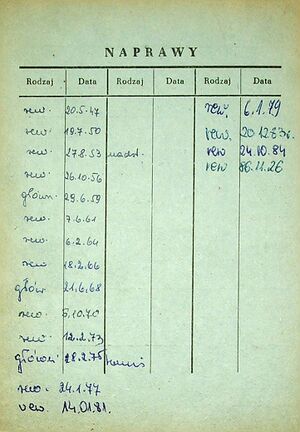 NAPRAWY
Rodzaj Data Rodzaj Data Rodzaj Data
rew. 20.5.47 rew. 6.1.79
rew. 19.7.50 rew. 20.12.83r.
rew. 27.8.53 rew 24.10.84
rew. 26.10.56 rew 86.11.26
główn. 29.6.59
rew. 7.6.61
rew. 6.2.64
rew 18.2.66
głów 21.6.68
rew. 5.10.70
rew. 12.2.73
główn. 28.2.75
rew. 24.1.77
rew. 14.01.81.